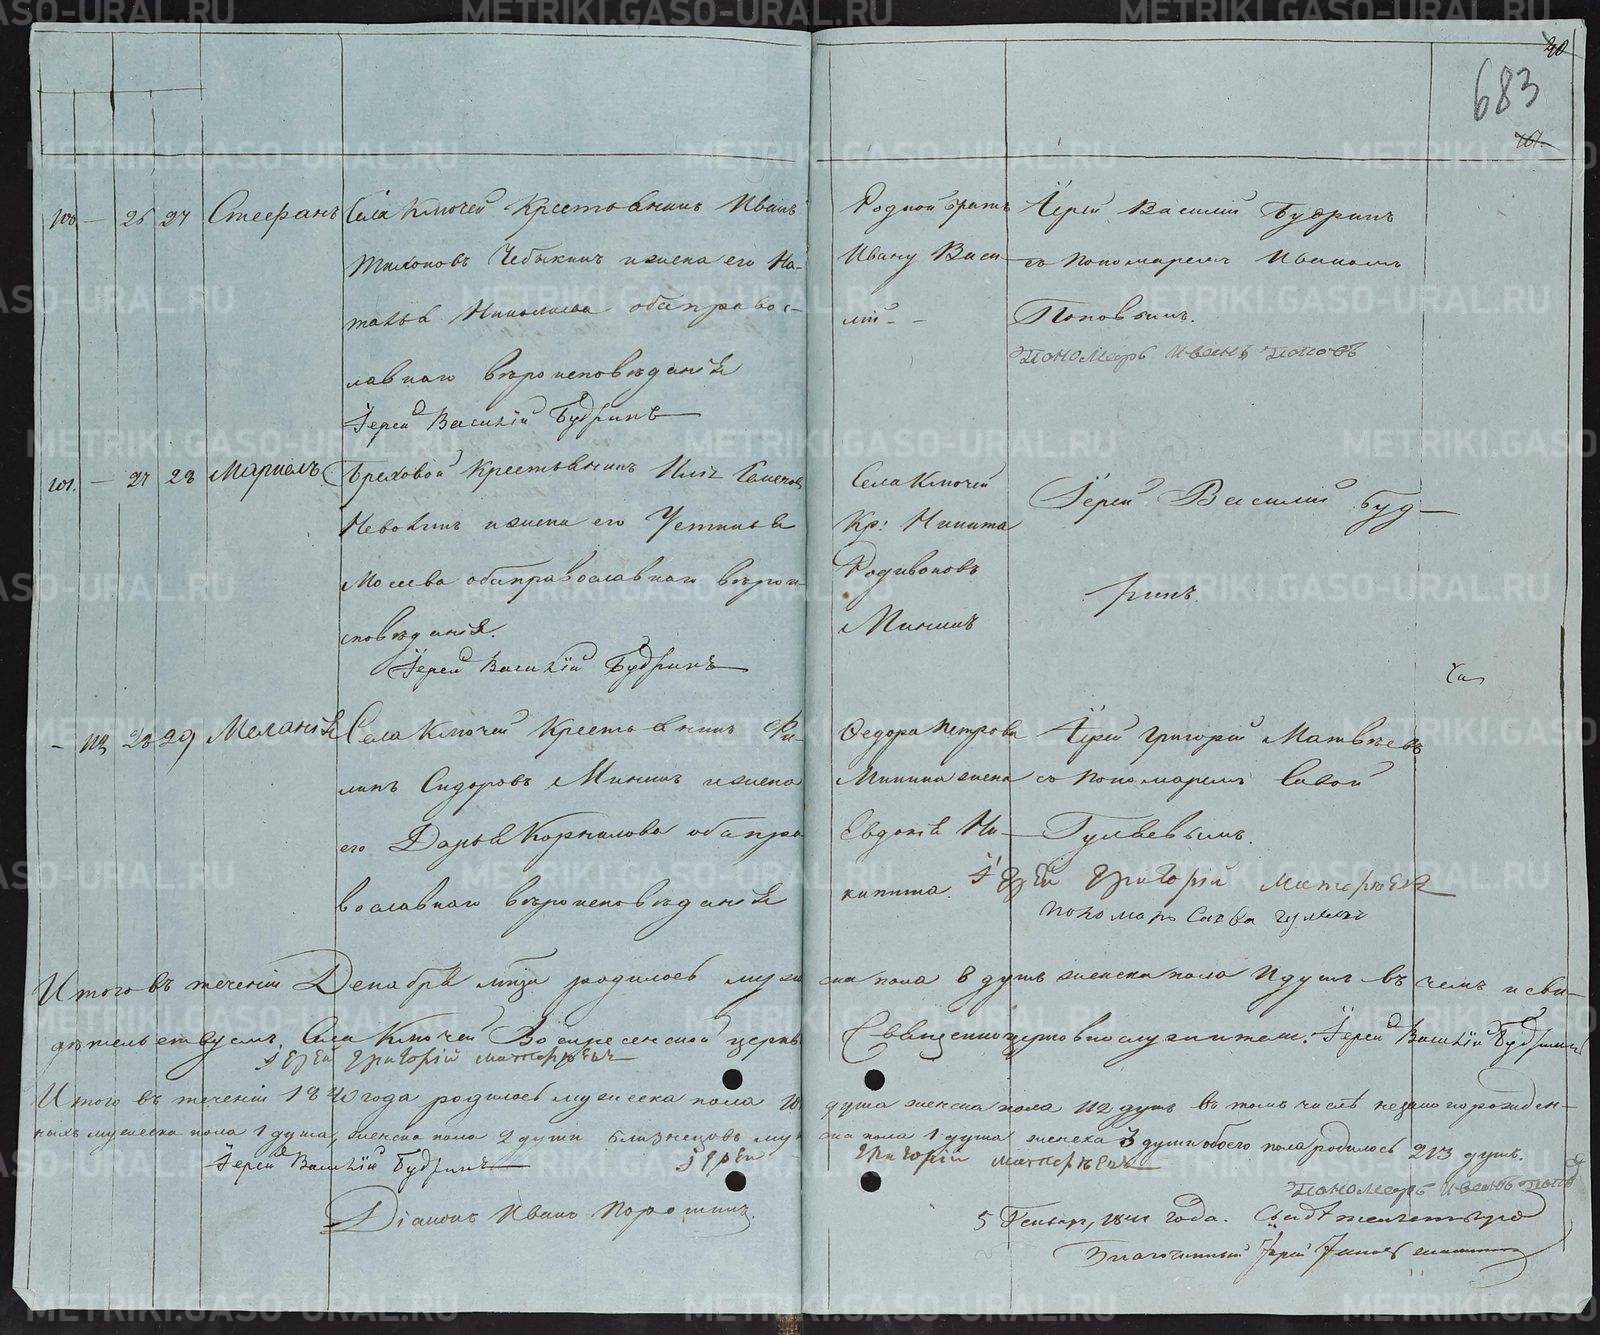 40
683
100 — 26 27 Стефанъ Села Ключей Крестьянинъ Иванъ
Тихоновъ Чебыкинъ и жена его На-
талья Николаева оба правос-
лавнаго вероисповеданія
Іерей Василій Будринъ
Родной братъ
Ивану Васи-
лій
Іерей Василій Будринъ
съ пономаремъ Иваномъ
Поповымъ.
Пономарь Иванъ Поповъ
101. — 27 28
Крестьянинъ
и жена его Устинья
Мосеева оба православнаго вероис-
поведанія.
Іерей Василій Будринъ
Села Ключей
Кр: Никита
Родивоновъ
Мининъ
Іерей Василій Буд-
ринъ.
— 112 28 29 Меланія Села Ключей Крестьянинъ Фи-
липъ Сидоровъ Мининъ и жена
его Дарья Корнилова оба пра-
вославнаго вероисповеданія
Федора Петрова
Минина жена
Евдокія Ни-
китина.
Іерей Григорій Матвеевъ
съ пономаремъ Савой
Гуляевымъ.
Іерей Григорій
Пономарь Савва Гуляевъ
Итого въ теченіи Декабря мца родилось муже-
ска пола 8 душъ женска пола 11 душъ въ чемъ и сви-
детельствуемъ. Села Ключей Воскресенской церкви
Священноцерковнослужители. Іерей Василій Будринъ
Іерей Григорій
Итого въ теченіи 1840 года родилось мужеска пола 101
душа женска пола 112 душъ въ томъ числе незаконнорожден-
ныхъ мужеска пола 1 душа, женска пола 2 души близнецовъ му-
ска пола 1 душа женска 3 души обоего пола родилось 213 душъ.
Іерей Василій Будринъ
Іерей Григорій
Пономарь Иванъ Поповъ
Діаконъ Иванъ Порошинъ.
5 Генваря 1841 года. Свидетельствовалъ
Благочинный Іерей
METRIKI.GASO-URAL.RU